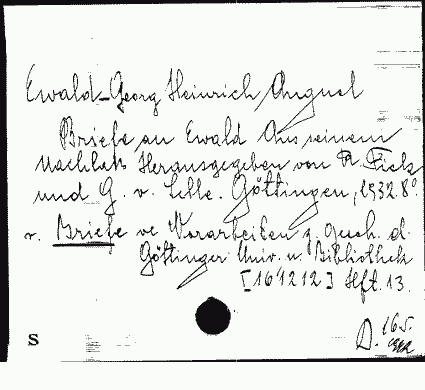 Ewald-Georg Heinrich August
Briefe an Ewald Aus seinem
Nachlass Herausgegeben von R. Fick
und G. v. Selle. Göttingen, 1932. 8°.
v. Briefe ve Vorarbeiten z. Gesch. d.
Göttinger Univ. u. Bibliothek
[161212] Hft. 13.
D. 16.5.
S